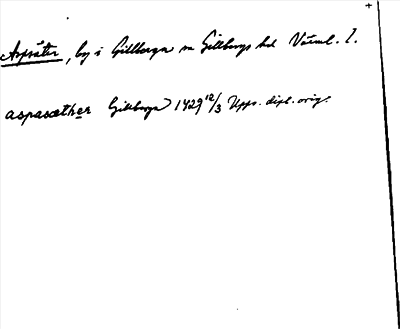 Aspsäter, by i Gillberga sn Gillbergs hd Värml. l.
aspasæther Gillberga 1429 12/3 Upps. dipl. orig.